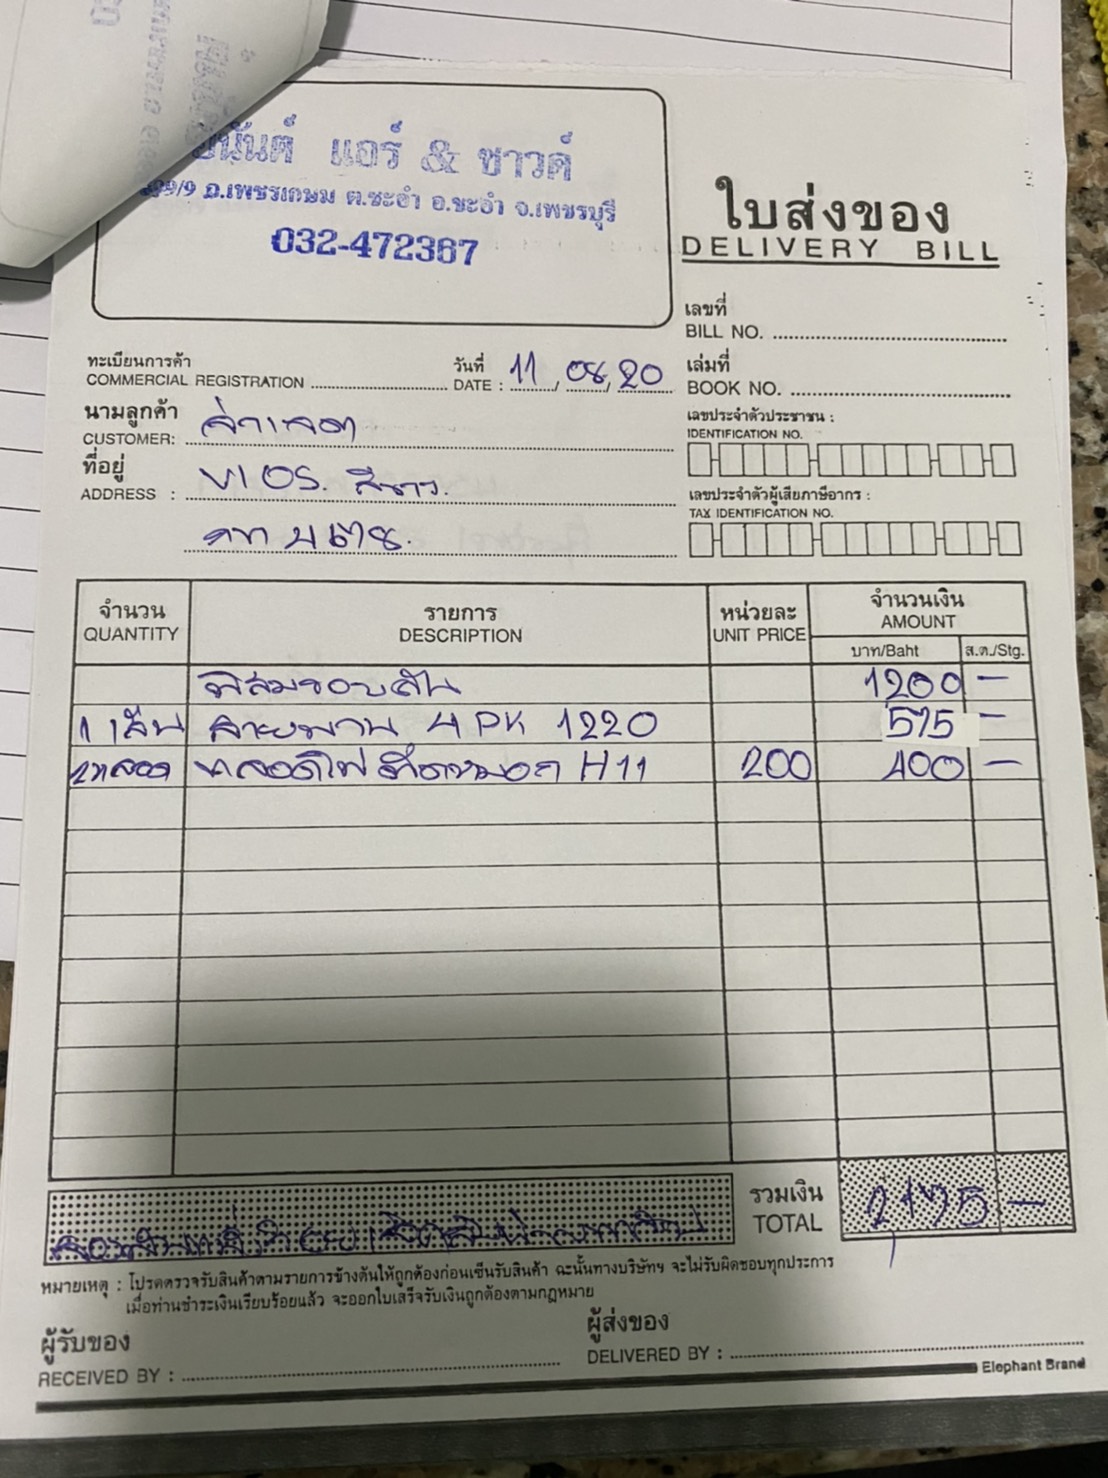 นันต์ แอร์ & ซาวด์
99/9 ถ.เพชรเกษม ต.ชะอำ อ.ชะอำ จ.เพชรบุรี
032-472367
ใบส่งของ
DELIVERY BILL
เลขที่
BILL NO.
ทะเบียนการค้า
COMMERCIAL REGISTRATION
วันที่
DATE : 11/08/20
เล่มที่
BOOK NO.
นามลูกค้า
CUSTOMER:
เลขประจำตัวประชาชน :
IDENTIFICATION NO.
ที่อยู่
ADDRESS : VIOS. สีขาว.
เลขประจำตัวผู้เสียภาษีอากร :
TAX IDENTIFICATION NO.
จำนวน
QUANTITY
รายการ
DESCRIPTION
หน่วยละ
UNIT PRICE
จำนวนเงิน
AMOUNT
บาท/Baht ส.ต./Stg.
ฟิล์มรอบคัน 1200 —
1 เส้น สายพาน 4PK 1220 575 —
2หลอด หลอดไฟตัดหมอก H11 200 400 —
รวมเงิน
TOTAL 2,175 —
หมายเหตุ : โปรดตรวจรับสินค้าตามรายการข้างต้นให้ถูกต้องก่อนเซ็นรับสินค้า ฉะนั้นทางบริษัทฯ จะไม่รับผิดชอบทุกประการ
เมื่อท่านชำระเงินเรียบร้อยแล้ว จะออกใบเสร็จรับเงินถูกต้องตามกฎหมาย
ผู้รับของ
RECEIVED BY :
ผู้ส่งของ
DELIVERED BY :
Elephant Brand